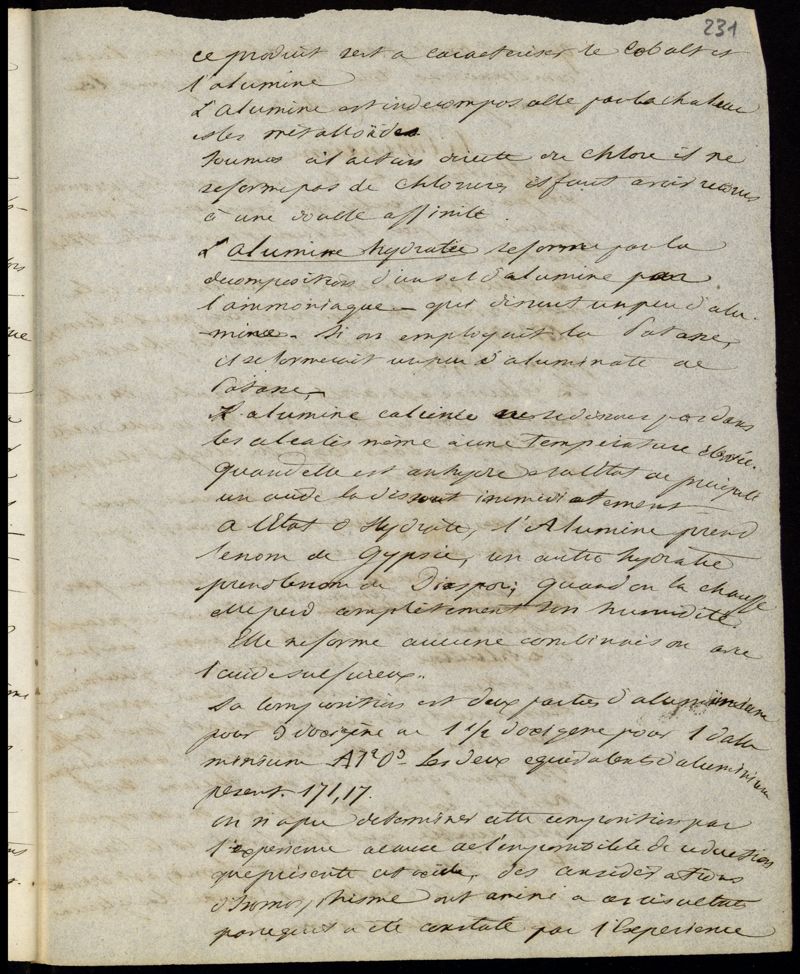 231
ce produit sert a caracteriser le Cobalt et
l'alumine
L'alumine est indecomposable par la chaleur
et les métalloïdes
soumis à l'action directe du Chlore il ne
se forme pas de chlorures, il faut avoir recours
à une double affinité.
L'alumine hydratée se forme par la
decomposition d'un sel d'alumine par
l'ammoniaque - qui dissout un peu d'alu-
-mine. Si on employait la Potasse,
il se formerait un peu d'aluminate de
Potasse,
L'alumine calcinée ne se dissous pas dans
les alcalis même à une Température élevée.
quand elle est anhydre et a l'état de précipité
un acide la dissout immédiatement
A l'Etat d'Hydrate, l'Alumine prend
le nom de Gypsie, un autre hydrate
prend le nom de Diaspore; quand on la chauffe
elle perd complètement son humidité.
Elle ne forme aucune combinaison avec
l'acide sulfureux.
Sa composition est deux parties d'aluminium
pour 3 d'oxigène ou 1 1/2 d'oxigène pour 1 d'alu
minium Al² O³. Les deux equivalents d'aluminium
pesent. 171,17.
On n'a pu determiner cette composition par
l'expérience a cause de l'impossibilité de réduction
que présente cet oxide, des considérations
d'Isomorphisme ont amené a ce résultat
parcequ'il a été constaté par l'Expérience